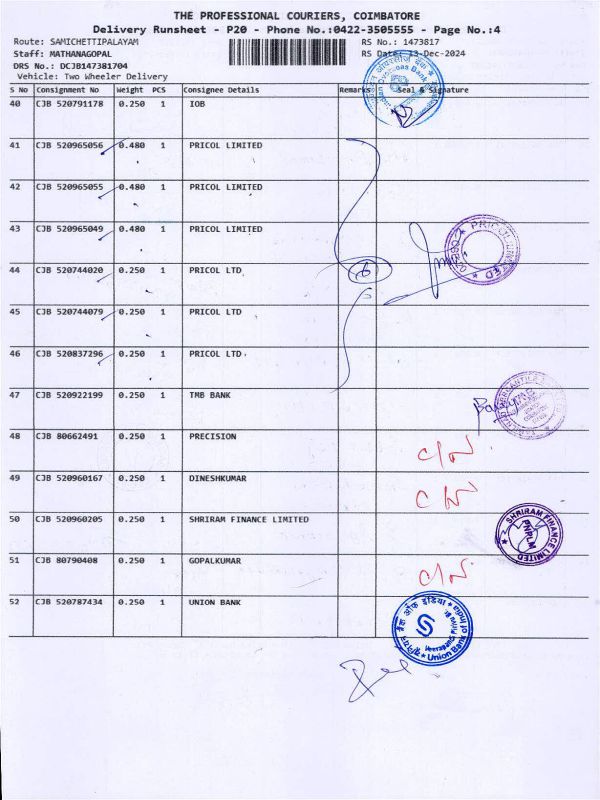 THE PROFESSIONAL COURIERS, COIMBATORE
Delivery Runsheet - P20 - Phone No.:0422-3505555 - Page No.:4
Route: SAMICHETTIPALAYAM RS No.: 1473817
Staff: MATHANAGOPAL RS Date: 13-Dec-2024
DRS No.: DCJB147381704
Vehicle: Two Wheeler Delivery
S No Consignment No Weight PCS Consignee Details Remarks Seal & Signature
40 CJB 520791178 0.250 1 IOB
41 CJB 520965056 0.480 1 PRICOL LIMITED
42 CJB 520965055 0.480 1 PRICOL LIMITED
43 CJB 520965049 0.480 1 PRICOL LIMITED
PRICOL LIMITED
44 CJB 520744020 0.250 1 PRICOL LTD
6
45 CJB 520744079 0.250 1 PRICOL LTD
46 CJB 520837296 0.250 1 PRICOL LTD
47 CJB 520922199 0.250 1 TMB BANK
48 CJB 80662491 0.250 1 PRECISION
C/N
49 CJB 520960167 0.250 1 DINESHKUMAR
C N
50 CJB 520960205 0.250 1 SHRIRAM FINANCE LIMITED
SHRIRAM FINANCE LIMITED
PNPLM
51 CJB 80790408 0.250 1 GOPALKUMAR
C/N
52 CJB 520787434 0.250 1 UNION BANK
Union Bank of India